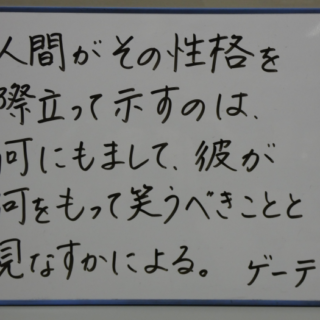 人間がその性格を
際立って示すのは、
何にもまして、彼が
何をもって笑うべきことと
見なすかによる。 ゲーテ